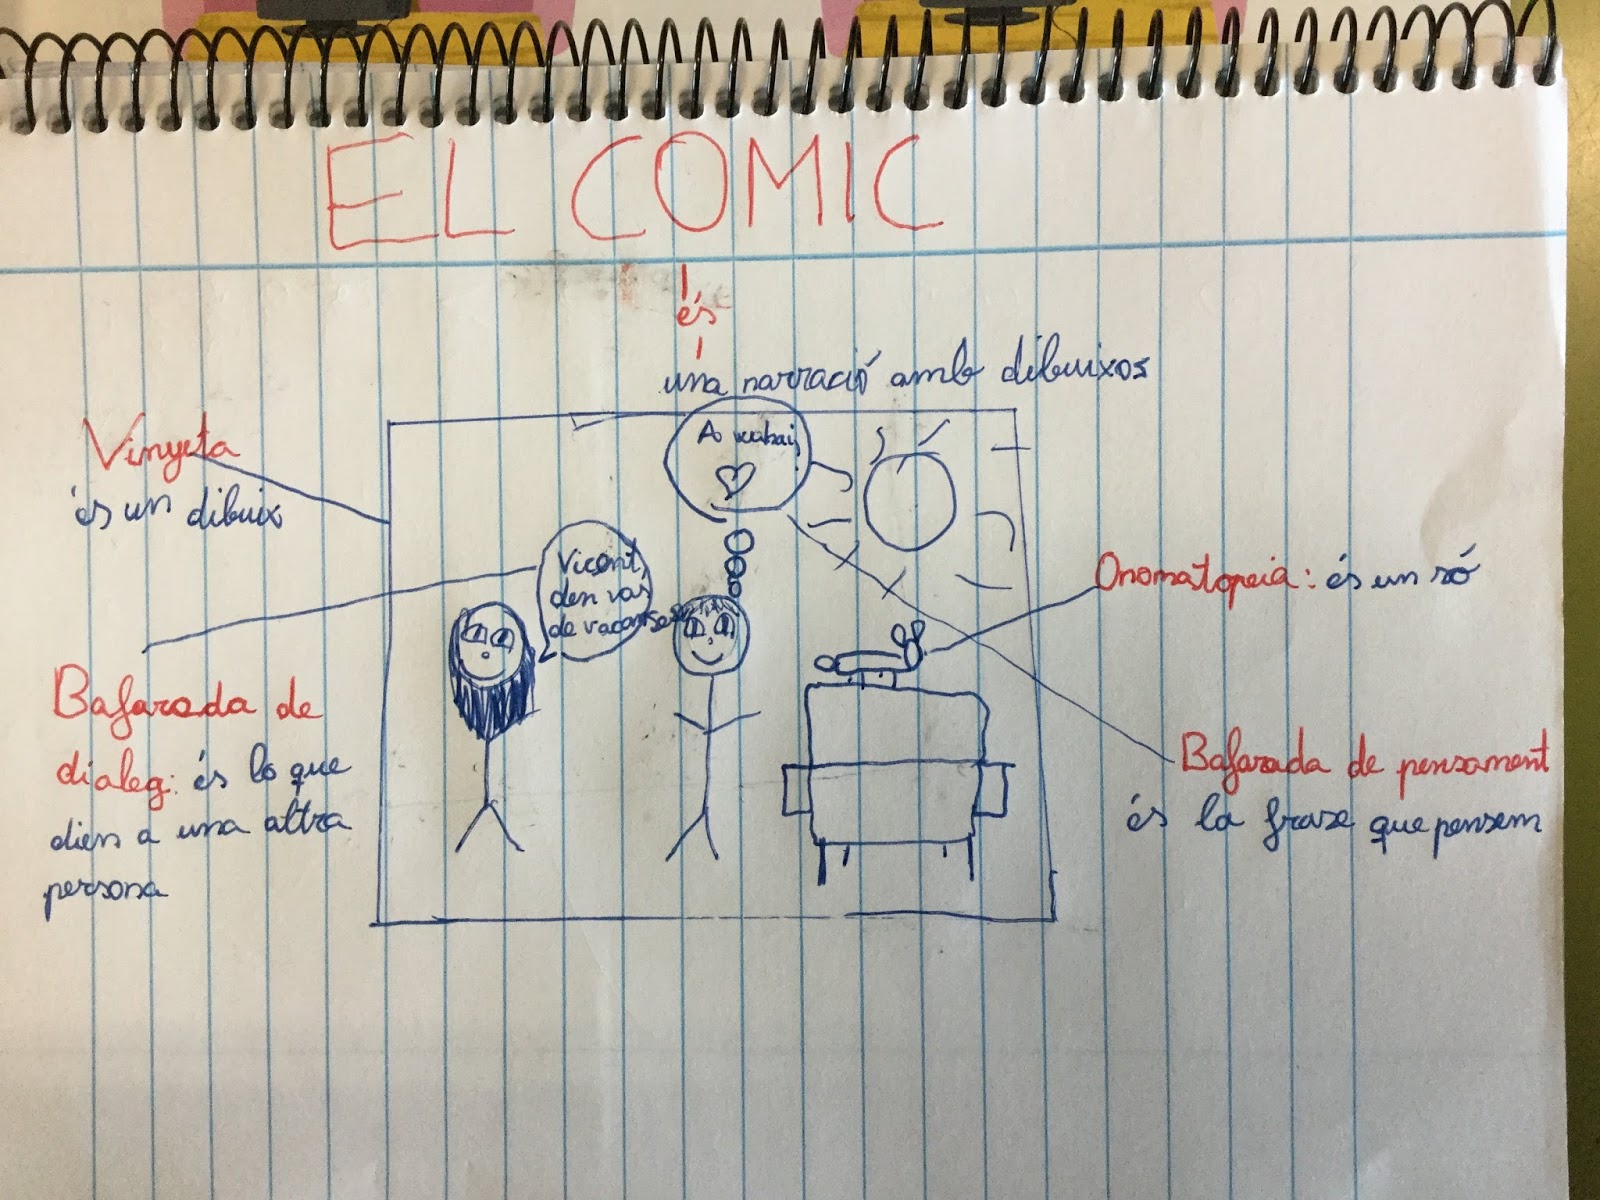 EL COMIC
és
una narració amb dibuixos
Vinyeta
és un dibuix
Vicent,
den vas
de
Onomatopeia: és un só
Bafarada de
dialeg: és lo que
dien a una altra
persona
Bafarada de pensament
és la frase que pensem